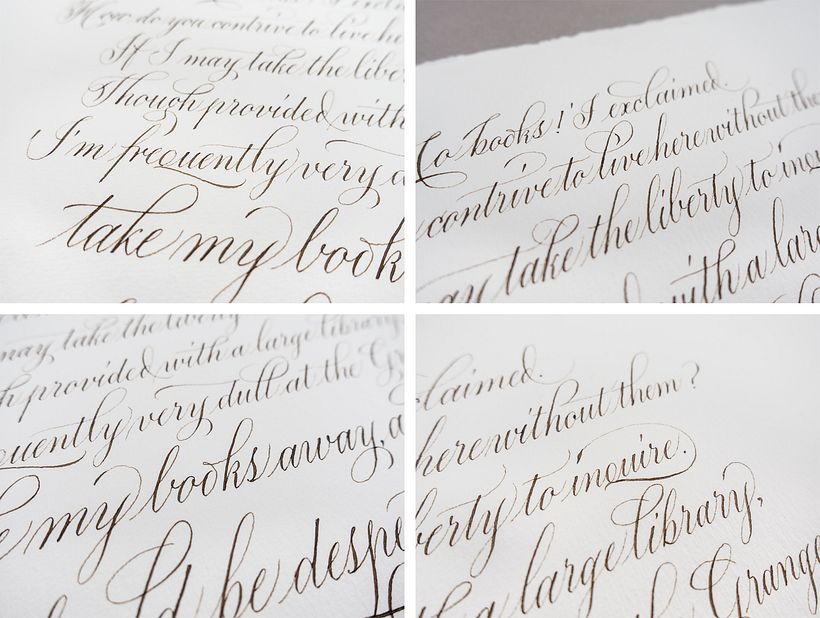 How do you contrive to live he
If I may take the liber
Though provided with
I'm frequently very d
take my book
No books!' I exclaimed.
contrive to live here without the
may take the liberty to inqu
with a larg
may take the liberty
h provided with a large library
quently very dull at the Gr
e my books away, a
I'd be despe
claimed.
here without them?
berty to inquire.
th a large library,
Grange